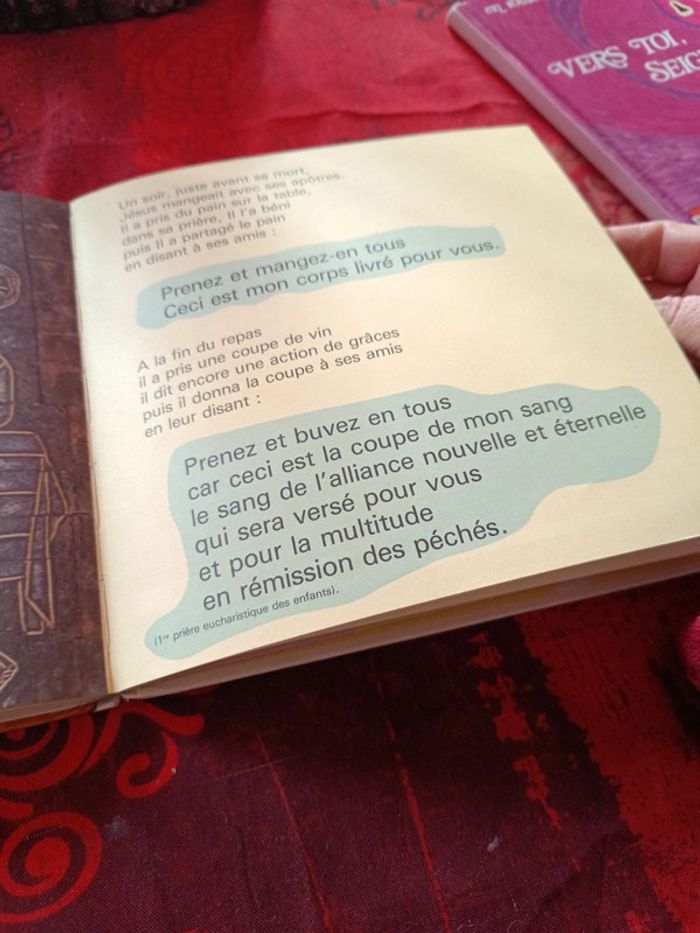 VERS TOI,
SEIG
Un soir, juste avant sa mort,
Jésus mangeait avec ses apôtres.
il a pris du pain sur la table,
dans sa prière, il l'a béni
puis il a partagé le pain
en disant à ses amis :
Prenez et mangez-en tous
Ceci est mon corps livré pour vous.
A la fin du repas
il a pris une coupe de vin
il dit encore une action de grâces
puis il donna la coupe à ses amis
en leur disant :
Prenez et buvez en tous
car ceci est la coupe de mon sang
le sang de l'alliance nouvelle et éternelle
qui sera versé pour vous
et pour la multitude
en rémission des péchés.
(1re prière eucharistique des enfants).